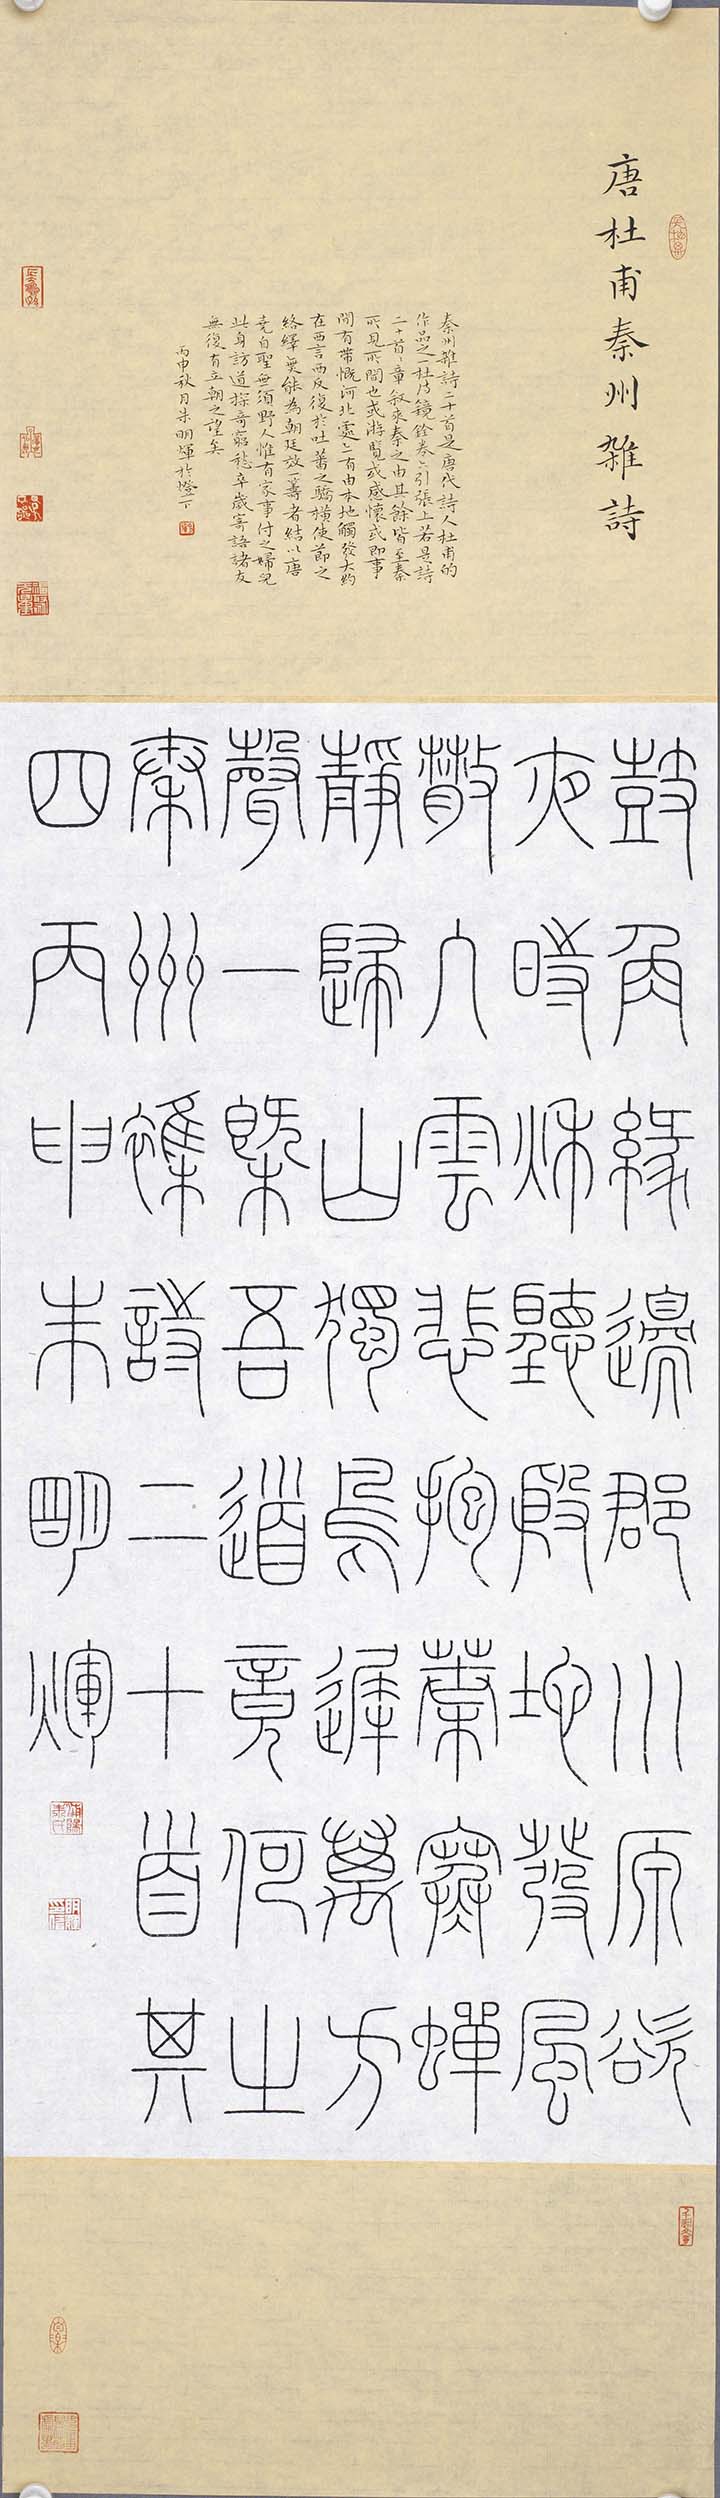 唐杜甫秦州雜詩
秦州雜詩二十首是唐代詩人杜甫的
作品之一杜詩鏡銓卷六引張上若是詩
二十首〻章叙來秦之由其餘皆至秦
所見所聞也或游覽或感懷或即事
間有帶慨河北處〻有由本地觸發大約
在西言西反復於吐蕃之驕横使節之
絡繹無能為朝廷效一籌者結以唐
堯自聖無須野人惟有家事付之婦兒
此身訪道探奇窮愁卒歲寄語諸友
無復有立朝之望矣
丙申秋月朱明輝於燈下
鼓角緣邊郡川原欲
夜時秋聽殷地發風
散入雲悲抱葉寒蟬
靜歸山獨鳥遲萬方
聲一概吾道竟何之
秦州雜詩二十首其
四丙申朱明輝